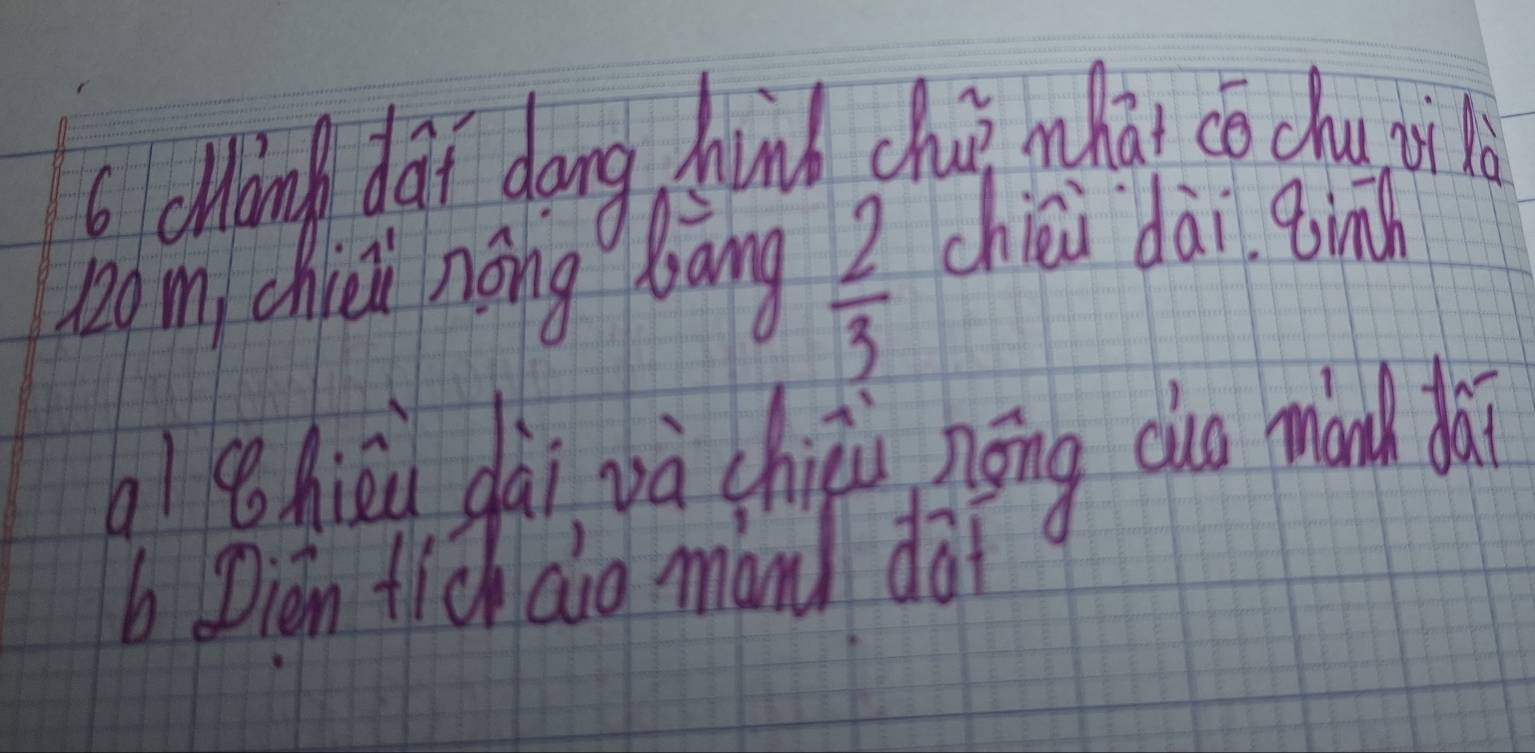 6 Mảnh đất dạng hình chữ nhật có chu vi là
120 m, chiều rộng bằng 2/3 chiều dài. Tính
a) Chiều dài và chiều rộng của mảnh đất
b Diện tích của mảnh đất